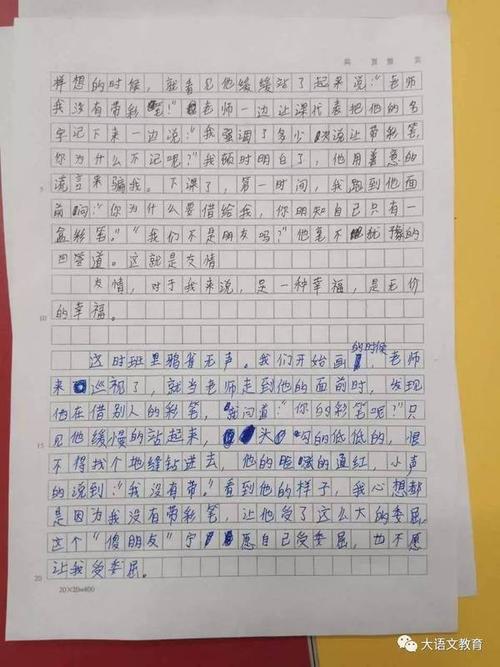 样想的时候，就看见他缓缓站了起来说："老师
我没有带彩笔！"老师一边让课代表把他的名
字记下来一边说："我强调了多少次说让带彩笔，
你为什么不记呢？"我顿时明白了，他用善意的
谎言来骗我。下课了，第一时间，我跑到他面
前问："你为什么要借给我，你明知自己只有一
盒彩笔。""我们不是朋友吗？"他毫不犹豫的
回答道。这就是友情
友情，对于我来说，是一种幸福，是无价
的幸福。
这时班里鸦雀无声。我们开始画的时候，老师
来巡视了，就当老师走到他的面前时，发现
他在借别人的彩笔，就问道："你的彩笔呢？"只
见他缓慢的站起来，头勾的低低的，恨
不得找个地缝钻进去，他的脸通红，小声
的说到："我没有带。"看到他的样子，我心想都
是因为我没有带彩笔，让他受了这么大的委屈，
这个"傻朋友"宁愿自己受委屈，也不愿
让我受委屈。
5
10
15
20
20×20=400
大语文教育